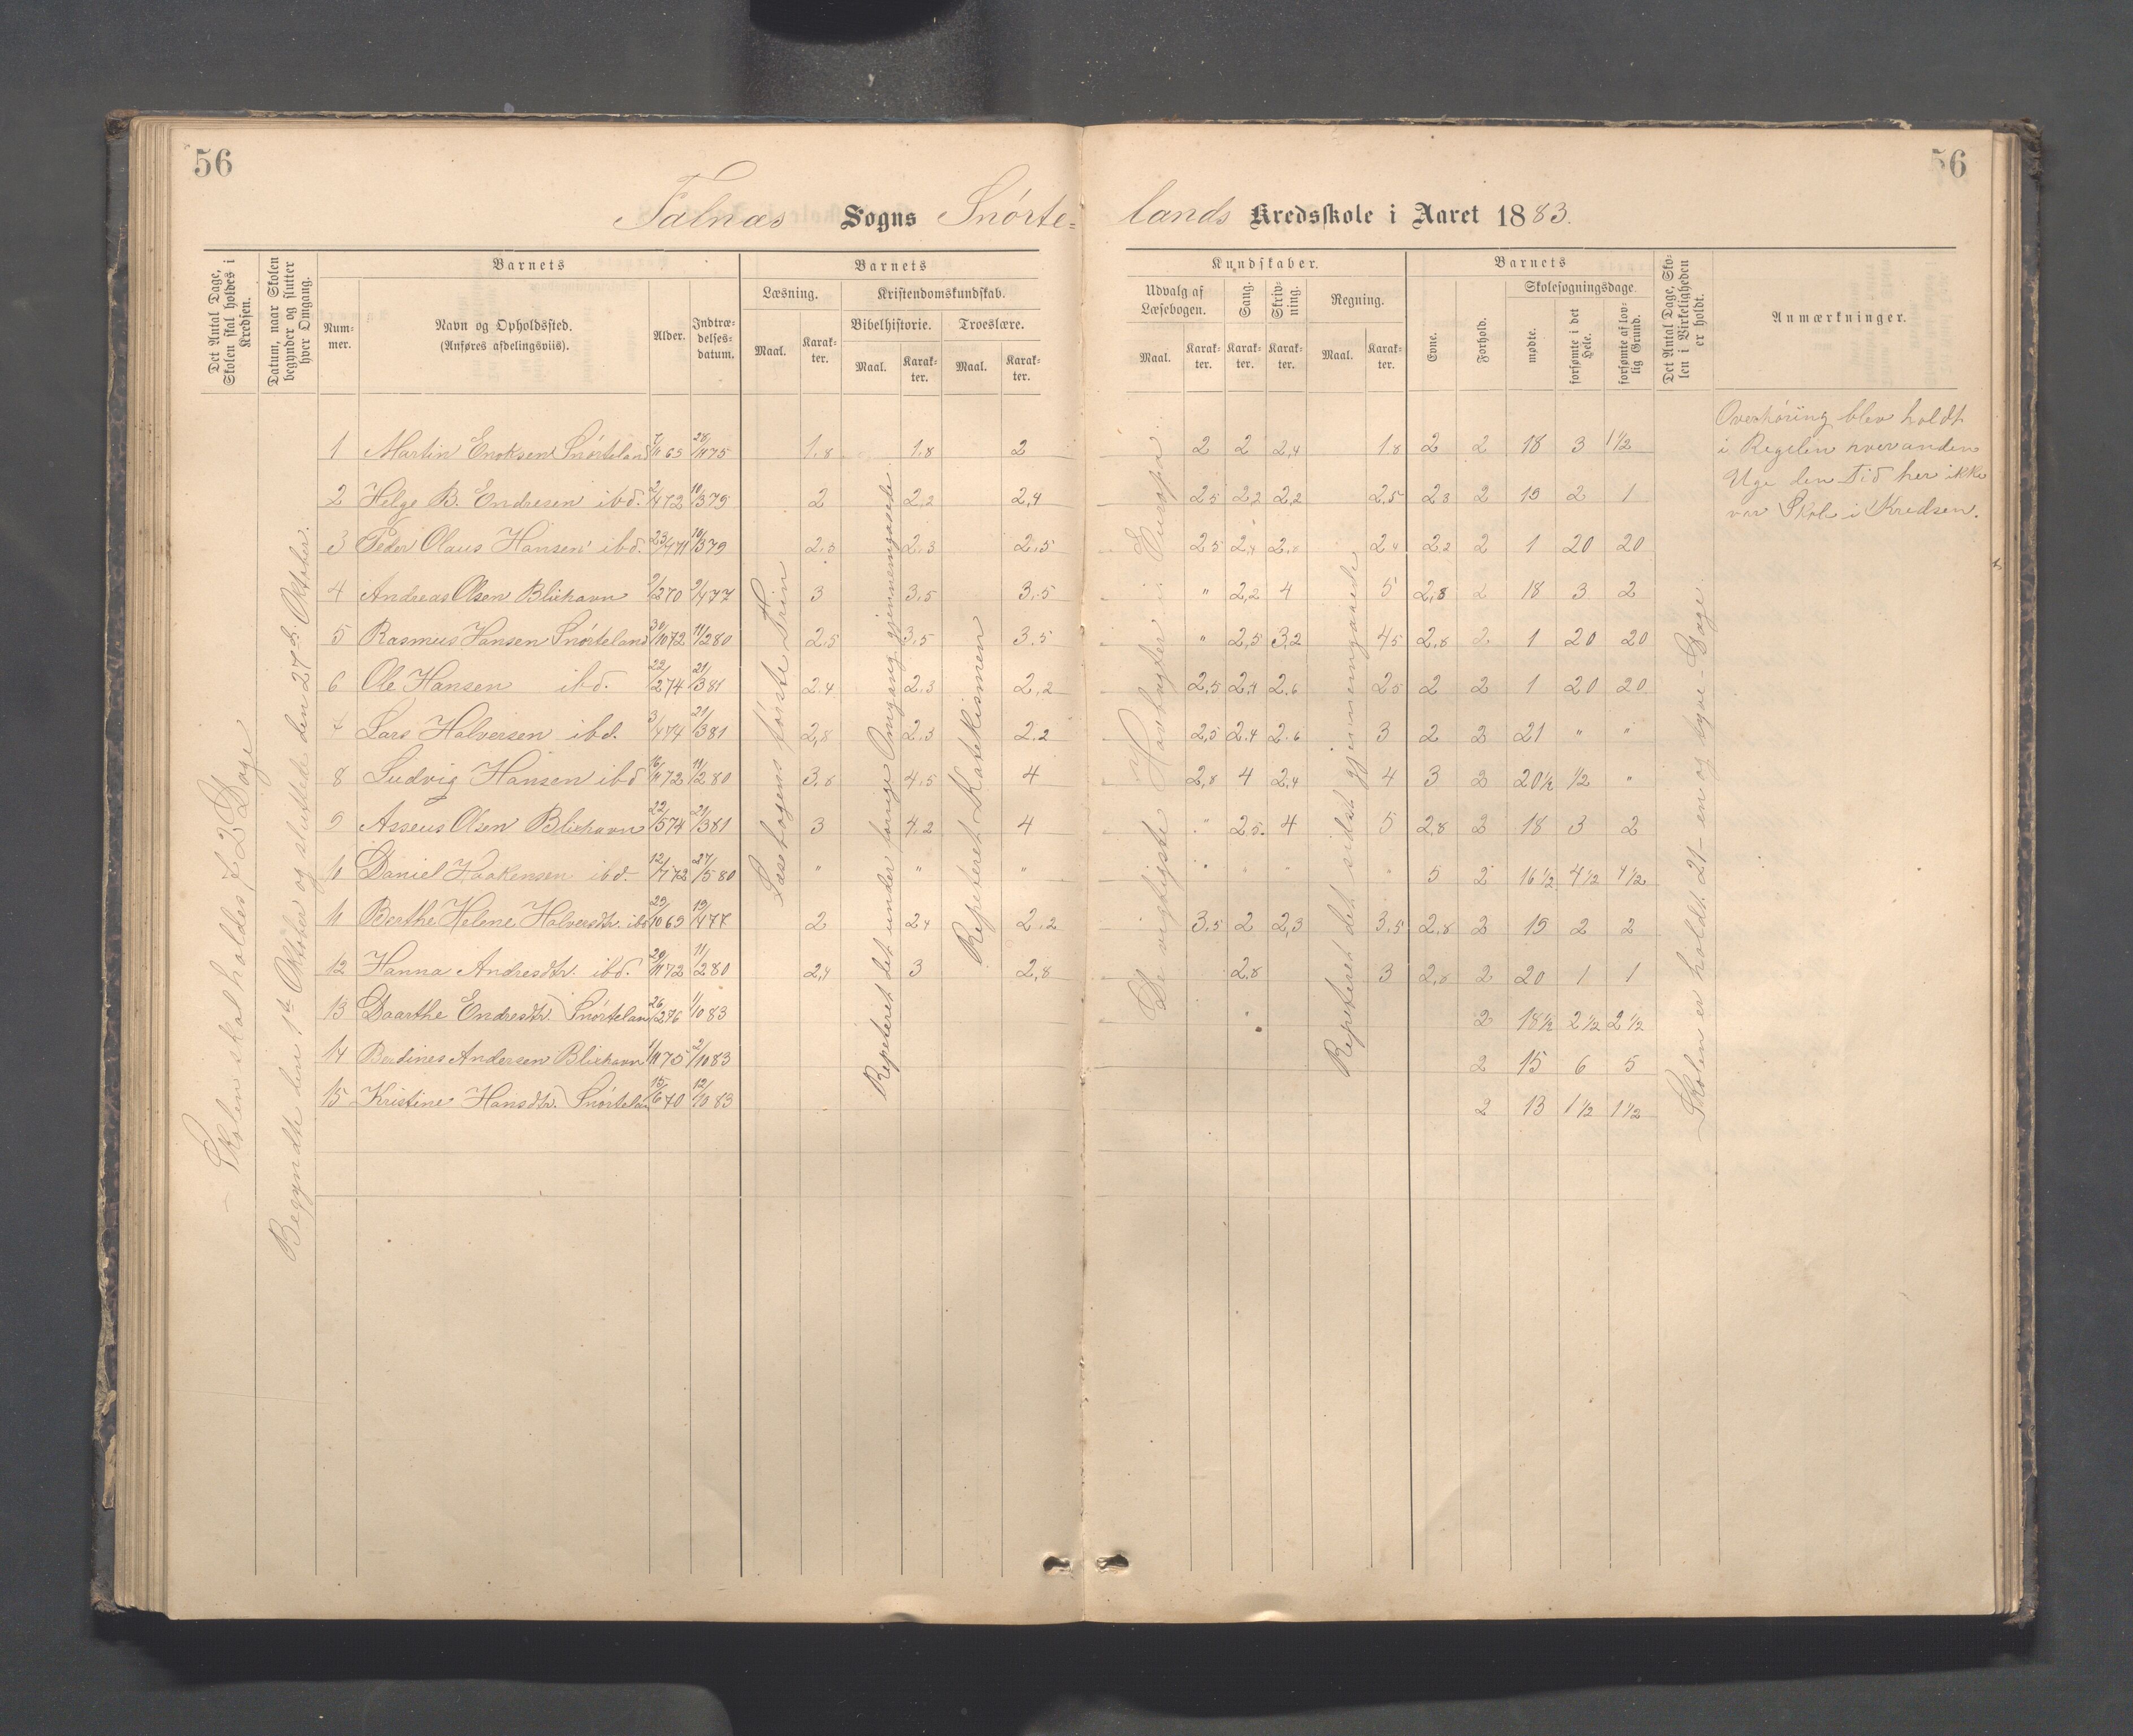 56
56
Falnæs Sogns Snørte=
lands Kredsskole i Aaret 1883.
Det Antal Dage, Skolen skal holdes i Kredsen.
Datum, naar Skolen begynder og slutter hver Omgang.
Barnets
Num-mer.
Navn og Opholdssted.
(Anføres afdelingsviis).
Alder.
Indtræ-delses-datum.
Barnets
Læsning.
Maal.
Karak-ter.
Kristendomskundskab.
Bibelhistorie.
Maal.
Karak-ter.
Troeslære.
Maal.
Karak-ter.
Kundskaber.
Udvalg af Læsebogen.
Maal.
Karak-ter.
Sang.
Karak-ter.
Skriv-ning.
Karak-ter.
Regning.
Maal.
Karak-ter.
Barnets
Evne.
Forhold.
Skolesøgningsdage.
mødte.
forsømte i det Hele.
forsømte af lov-lig Grund.
Det Antal Dage, Sko-len i Virkeligheden er holdt.
Anmærkninger.
Skolen skal holdes 72 Dage
Begyndte den 1ste Oktober og sluttede den 27de Oktober.
Læsebogens første Trin
Repeteret det under forrige Omgang gjennemgaaede
Repeteret Katekismen
De vigtigste Havbugter i Europa.
Repeteret det sidst gjennemgaaede
Skolen er holdt 21 - en og tyve - Dage.
Overhøring blev holdt
i Regelen hveranden
Uge den Tid her ikke
var Skole i Kredsen.
1 Martin Enoksen Snørteland 7/11 69 28/11 75 1.8 1.8 2 2 2 2,4 1.8 2 2 18 3 1 1/2
2 Helge B. Endresen ibd. 2/4 72 10/3 79 2 2,2 2,4 2 5 2 2 2,2 2,5 2 3 2 19 2 1
3 Peder Olaus Hansen ibd. 23/4 71 10/3 79 2.3 2.3 2.5 2 5 2,4 2 4 2 2 2 1 20 20
4 Andreas Olsen Blixhavn 2/2 70 2/4 77 3 3,5 3.5 " 2,2 4 5 2,8 2 18 3 2
5 Rasmus Hansen Snørteland 30/10 72 11/2 80 2,5 3,5 3.5 " 2,5 3,2 4 5 2,8 2 1 20 20
6 Ole Hansen ibd. 22/2 74 21/3 81 2.4 2.3 2,2 2,5 2,4 2.6 2 5 2 2 1 20 20
7 Lars Halversen ibd. 3/4 74 21/3 81 2,8 2.3 2.2 2,5 2.4 2.6 3 2 2 21 " "
8 Ludvig Hansen ibd 16/11 72 11/2 80 3.8 4.5 4 2,8 4 2,4 4 3 2 20 1/2 1/2 "
9 Asseus Olsen Blixhavn 22/5 74 21/3 81 3 4.2 4 " 2,5 4 5 2,8 2 18 3 2
10 Daniel Haakensen ibd. 12/7 72 27/5 80 " " " " " " " 5 2 16 1/2 4 1/2 4 1/2
11 Berthe Helene Halversdtr. ibd 29/10 69 19/4 77 2 2 4 2.2 3.5 2 2,3 3.5 2.8 2 19 2 2
12 Hanna Andresdtr. ibd. 29/11 72 11/2 80 2,4 3 2,8 2,8 3 2,8 2 20 1 1
13 Daarthe Endresdtr. Snørteland 26/2 76 1/10 83 2 18 1/2 2 1/2 2 1/2
14 Berdines Andersen Blixhavn 1/11 75 2/10 83 2 15 6 5
15 Kristine Hansdtr. Snørteland 15/6 70 12/10 83 2 13 1 1/2 1 1/2